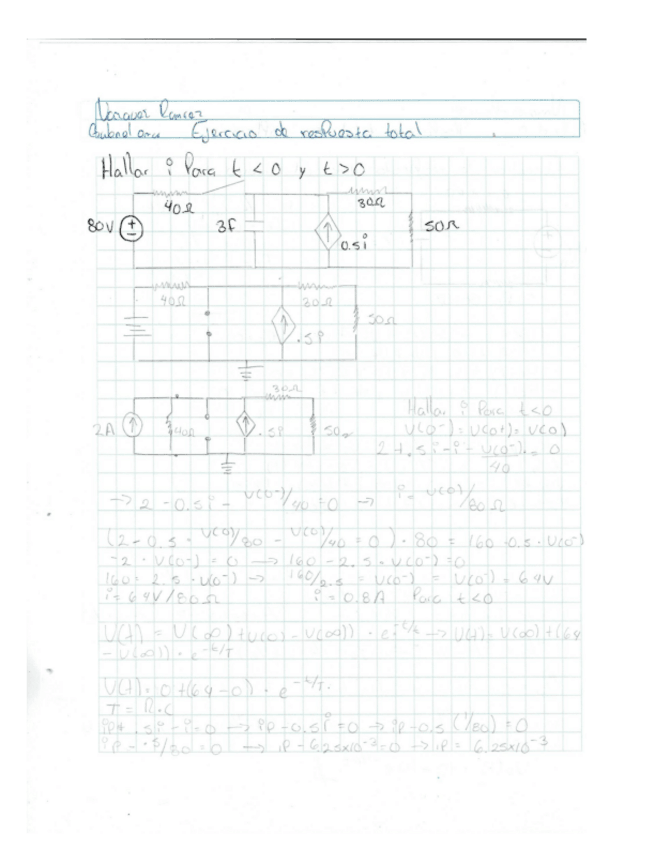 Gabriel Ejercicio de respuesta total
Hallar i Para t < 0 y t > 0
40Ω 30Ω
80V 3f 0.5i 50Ω
40Ω 30Ω
.5i 50Ω
30Ω
2A 40Ω .5i 50Ω
Hallar i Para t<0
V(0-) = V(0+) = V(0)
2 + .5i - i - V(0-)/40 = 0
→ 2 - 0.5i - V(0)/40 = 0 → i = V(0)/80Ω
(2 - 0.5 · V(0)/80 - V(0)/40 = 0) · 80 = 160 - 0.5 · V(0-)
-2 · V(0-) = 0 → 160 - 2.5 · V(0-) = 0
160 = 2.5 · V(0-) → 160/2.5 = V(0-) = V(0-) = 64V
i = 64V/80Ω i = 0.8A Para t<0
V(t) = V(∞) + V(0) - V(∞)) · e -t/τ → V(t) = V(∞) + (64
- V(∞)) · e -t/τ
V(t) = 0 + (64 - 0) · e -t/τ
τ = R·C
ip + .5i - i = 0 → ip - 0.5i = 0 → ip - 0.5 (1/80) = 0
ip - .5/80 = 0 → ip - 6.25x10-3 = 0 → ip = 6.25x10-3